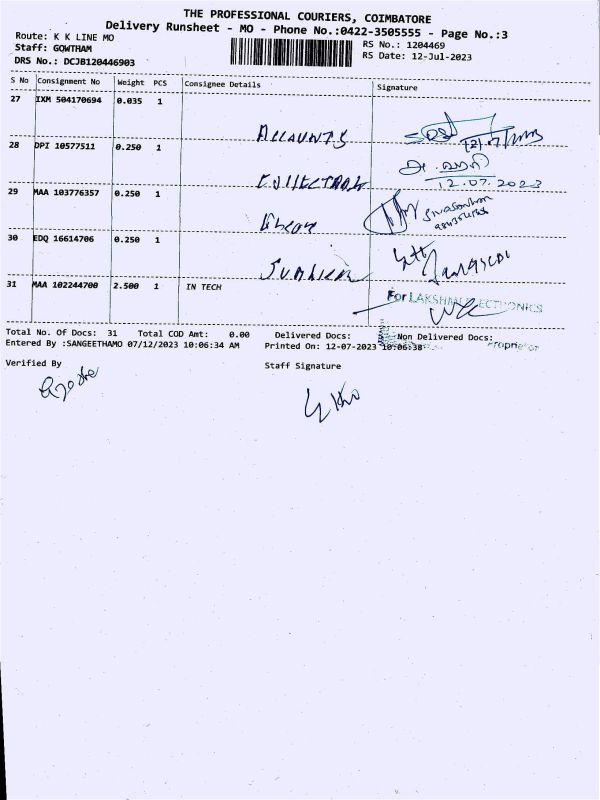 THE PROFESSIONAL COURIERS, COIMBATORE
Delivery Runsheet - MO - Phone No.:0422-3505555 - Page No.:3
Route: K K LINE MO
Staff: GOWTHAM
DRS No.: DCJB120446903
RS No.: 1204469
RS Date: 12-Jul-2023
S No Consignment No Weight PCS Consignee Details Signature
27 IXM 504170694 0.035 1
ACCOUNTS
28 DPI 10577511 0.250 1
12.07.2023
29 MAA 103776357 0.250 1
30 EDQ 16614706 0.250 1
31 MAA 102244700 2.500 1 IN TECH
For LAKSHMI ELECTRONICS
Proprietor
Total No. Of Docs: 31 Total COD Amt: 0.00 Delivered Docs: Non Delivered Docs:
Entered By :SANGEETHAMO 07/12/2023 10:06:34 AM Printed On: 12-07-2023 10:06:38
Verified By
Staff Signature